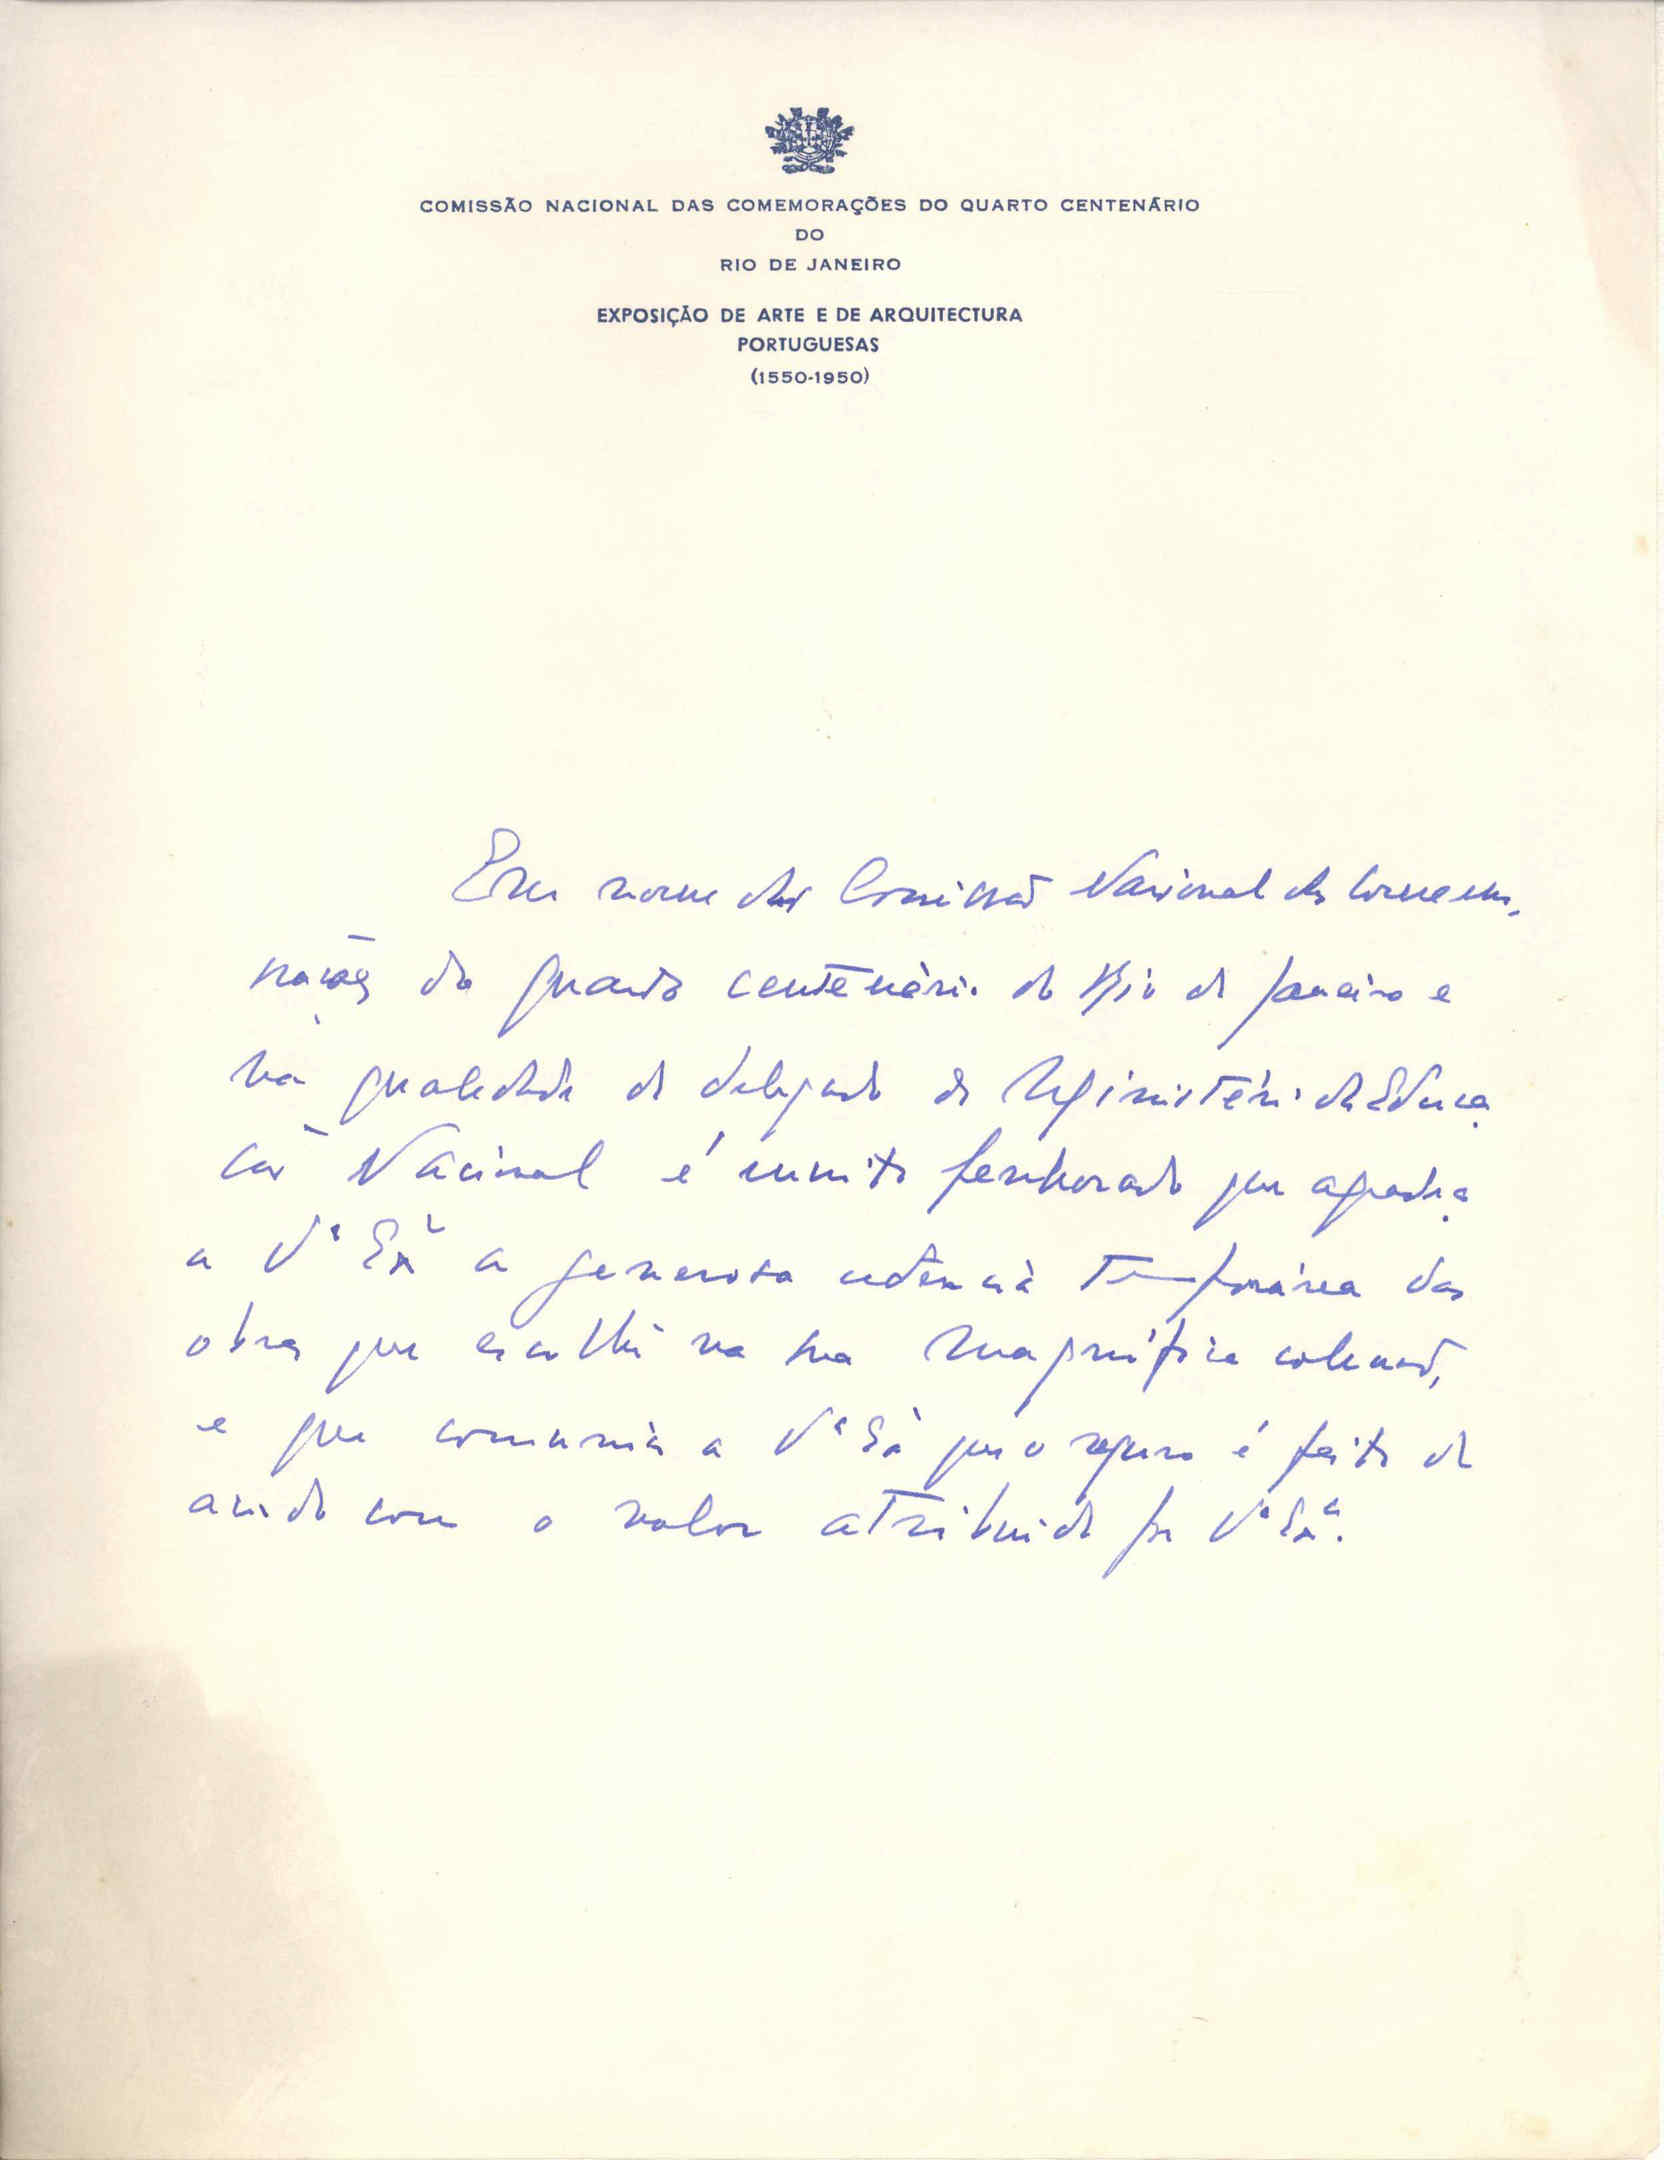 COMISSÃO NACIONAL DAS COMEMORAÇÕES DO QUARTO CENTENÁRIO
DO
RIO DE JANEIRO
EXPOSIÇÃO DE ARTE E DE ARQUITECTURA
PORTUGUESAS
(1550-1950)
Em nome da Comissão Nacional das Comemo-
rações do quarto centenário do Rio de Janeiro e
na qualidade de delegado do Ministério da Educa
ção Nacional é muito penhorado que agradeço
a Vª Exª a generosa cedência temporária das
obras que escolhi na sua magnífica colecção,
e que comunico a Vª Exª que o seguro é feito de
acordo com o valor atribuido por Vª Exª.